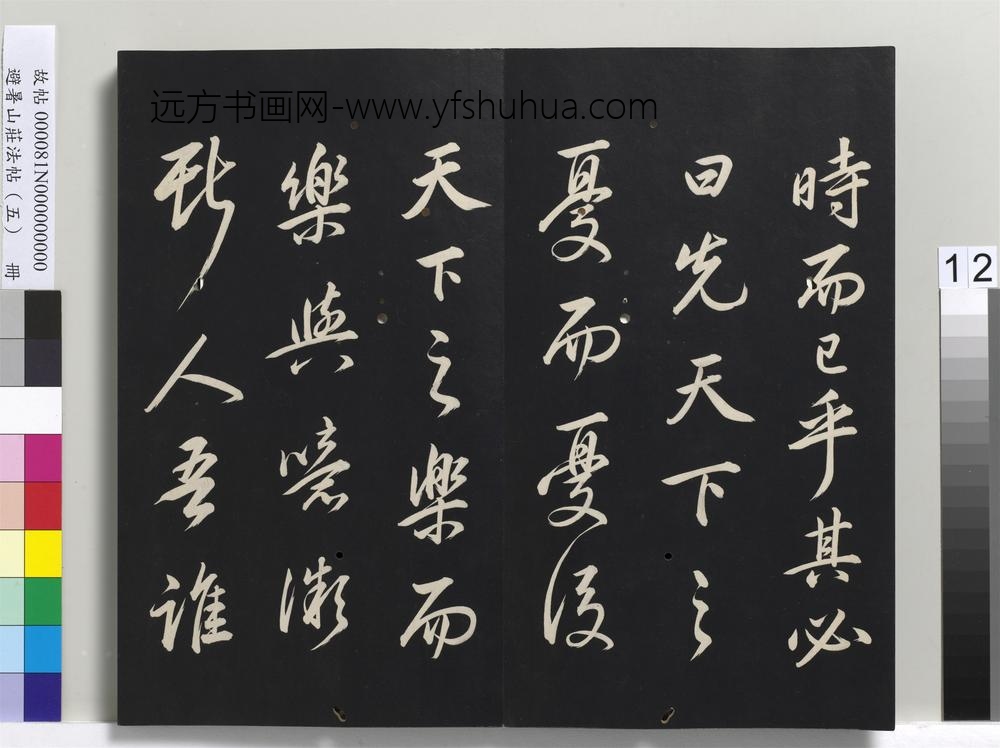 時而已乎其必
曰先天下之
憂而憂後
天下之樂而
樂與噫微
斯人吾誰
远方书画网-www.yfshuhua.com
故帖 000081N000000000
避暑山莊法帖（五） 冊
12